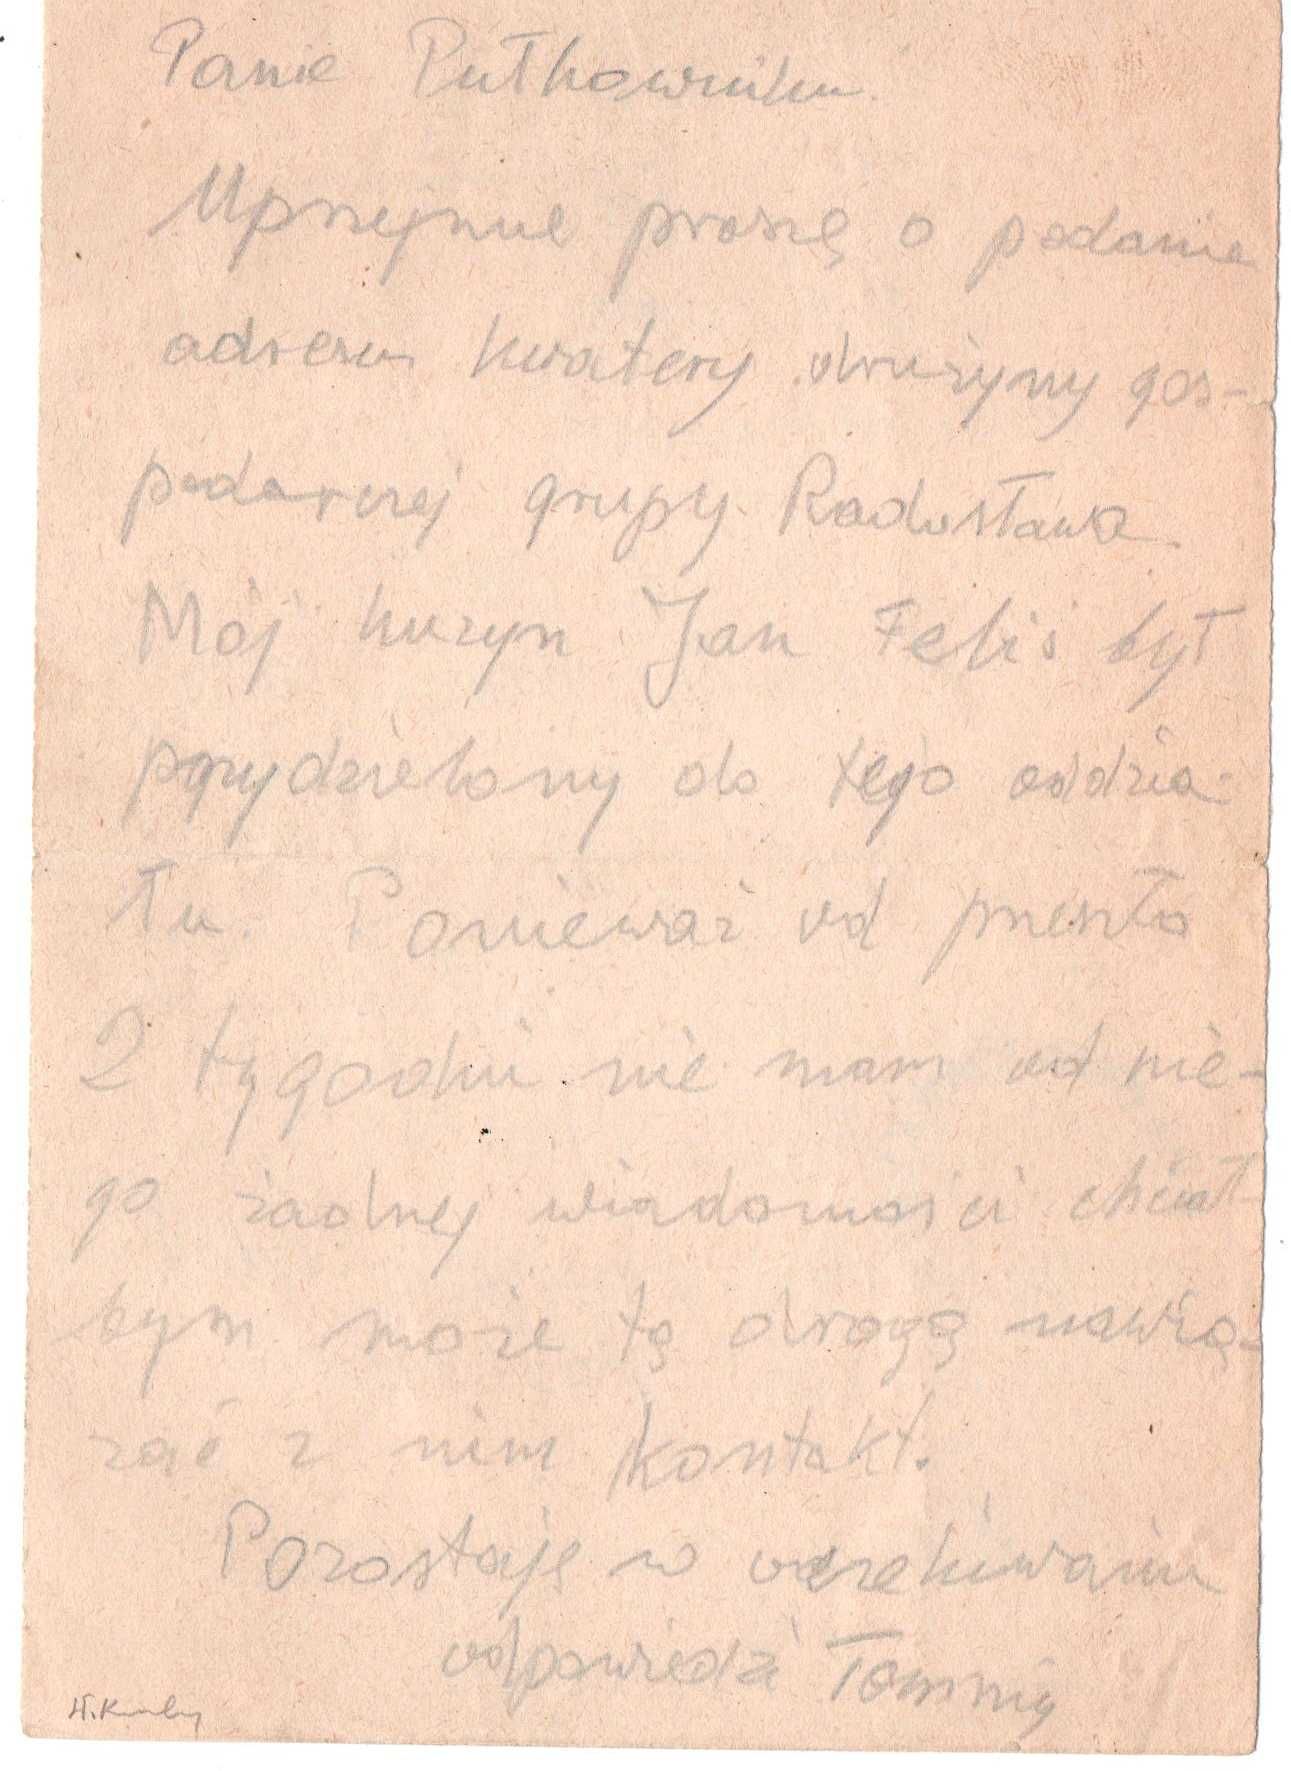 Panie Pułkowniku.
Uprzejmie proszę o podanie
adresu kwatery drużyny gos-
podarczej grupy Radosława.
Mój kuzyn Jan Felis był
przydzielony do tego oddzia-
łu. Ponieważ od przeszło
2 tygodni nie mam od nie-
go żadnej wiadomości chciał
bym może tą drogą nawią-
zać z nim kontakt.
Pozostaję w oczekiwaniu
odpowiedzi